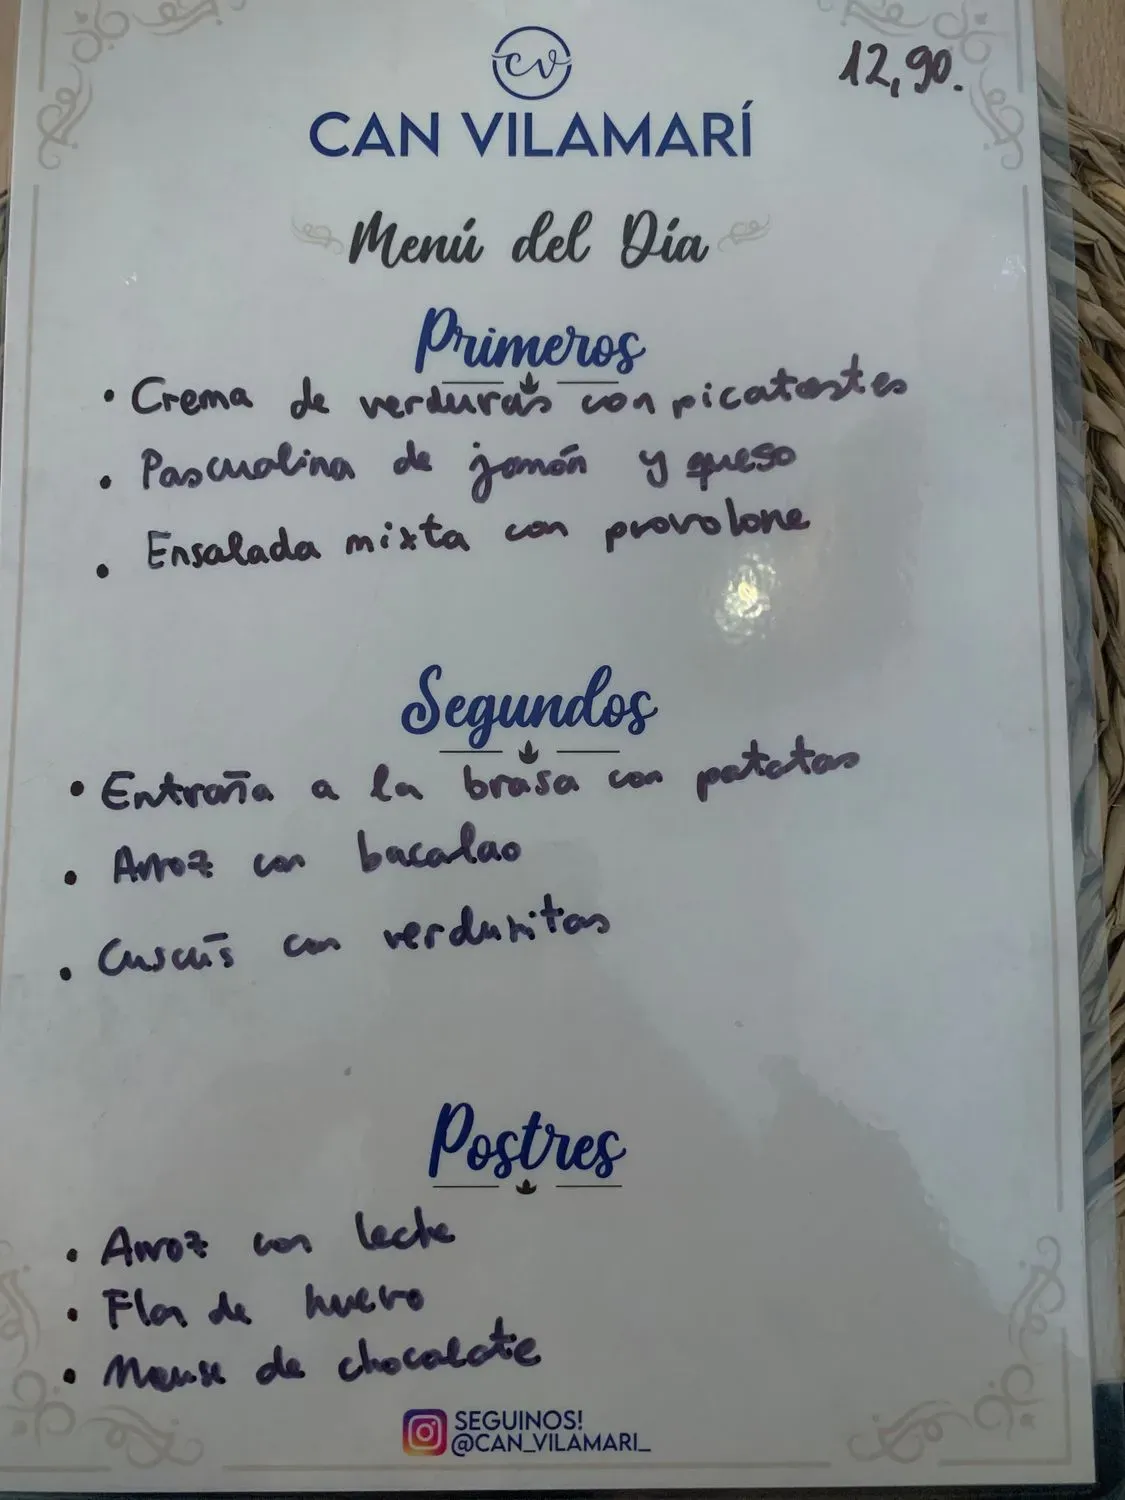 cv
12,90.
CAN VILAMARÍ
Menú del Día
Primeros
• Crema de verduras con picatostes
• Pascualina de jamón y queso
• Ensalada mixta con provolone
Segundos
• Entraña a la brasa con patatas
• Arroz con bacalao
• Cuscús con verduritas
Postres
• Arroz con leche
• Flan de huevo
• Mouse de chocolate
SEGUINOS!
@CAN_VILAMARI_